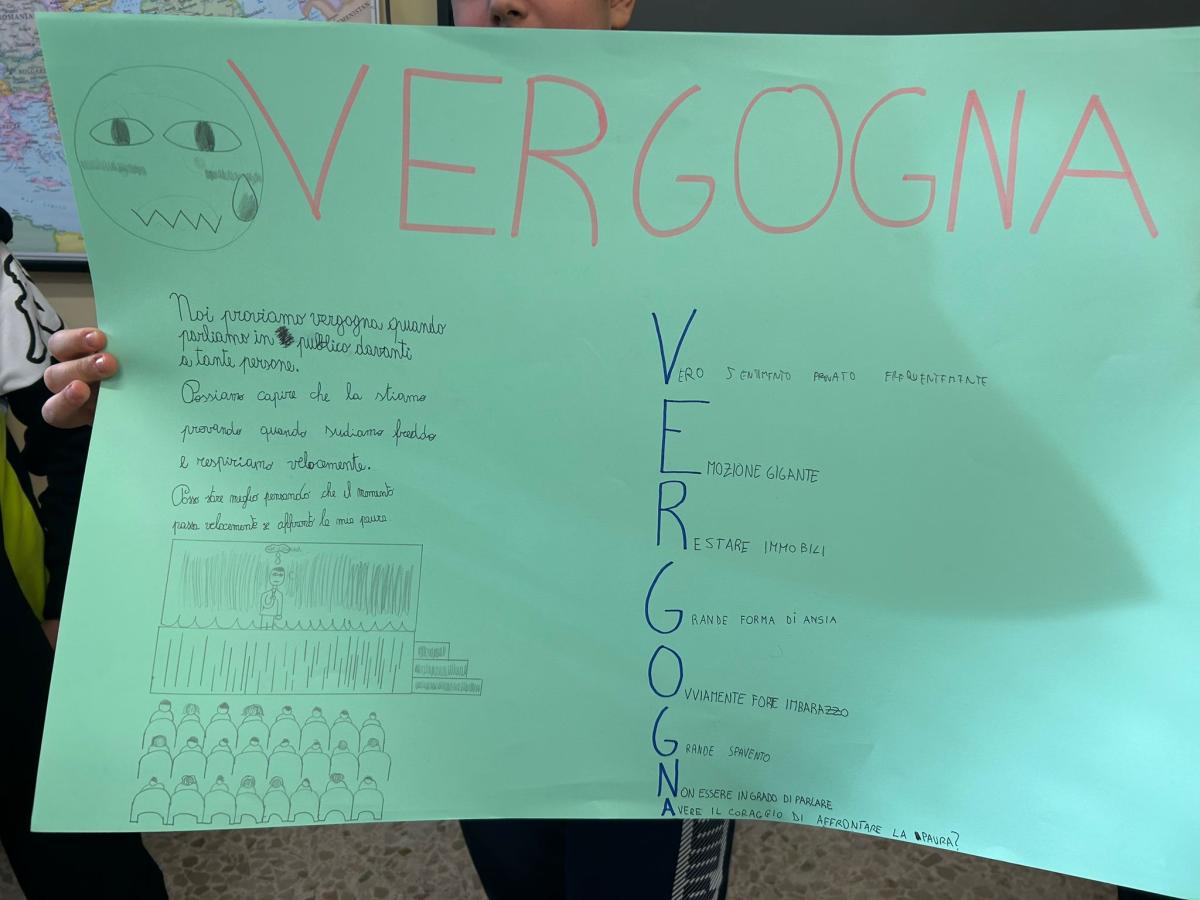 VERGOGNA
Noi proviamo vergogna quando
parliamo in pubblico davanti
a tante persone.
Possiamo capire che la stiamo
provando quando sudiamo freddo
e respiriamo velocemente.
Posso stare meglio pensando che il momento
passa velocemente se affronto le mie paure
VERO SENTIMENTO PROVATO FREQUENTEMENTE
EMOZIONE GIGANTE
RESTARE IMMOBILI
GRANDE FORMA Di ANSIA
OVVIAMENTE FORE IMBARAZZO
GRANDE SPAVENTO
NON ESSERE IN GRADO DI PARLARE
AVERE IL CORAGGIO DI AFFRONTARE LA PAURA?